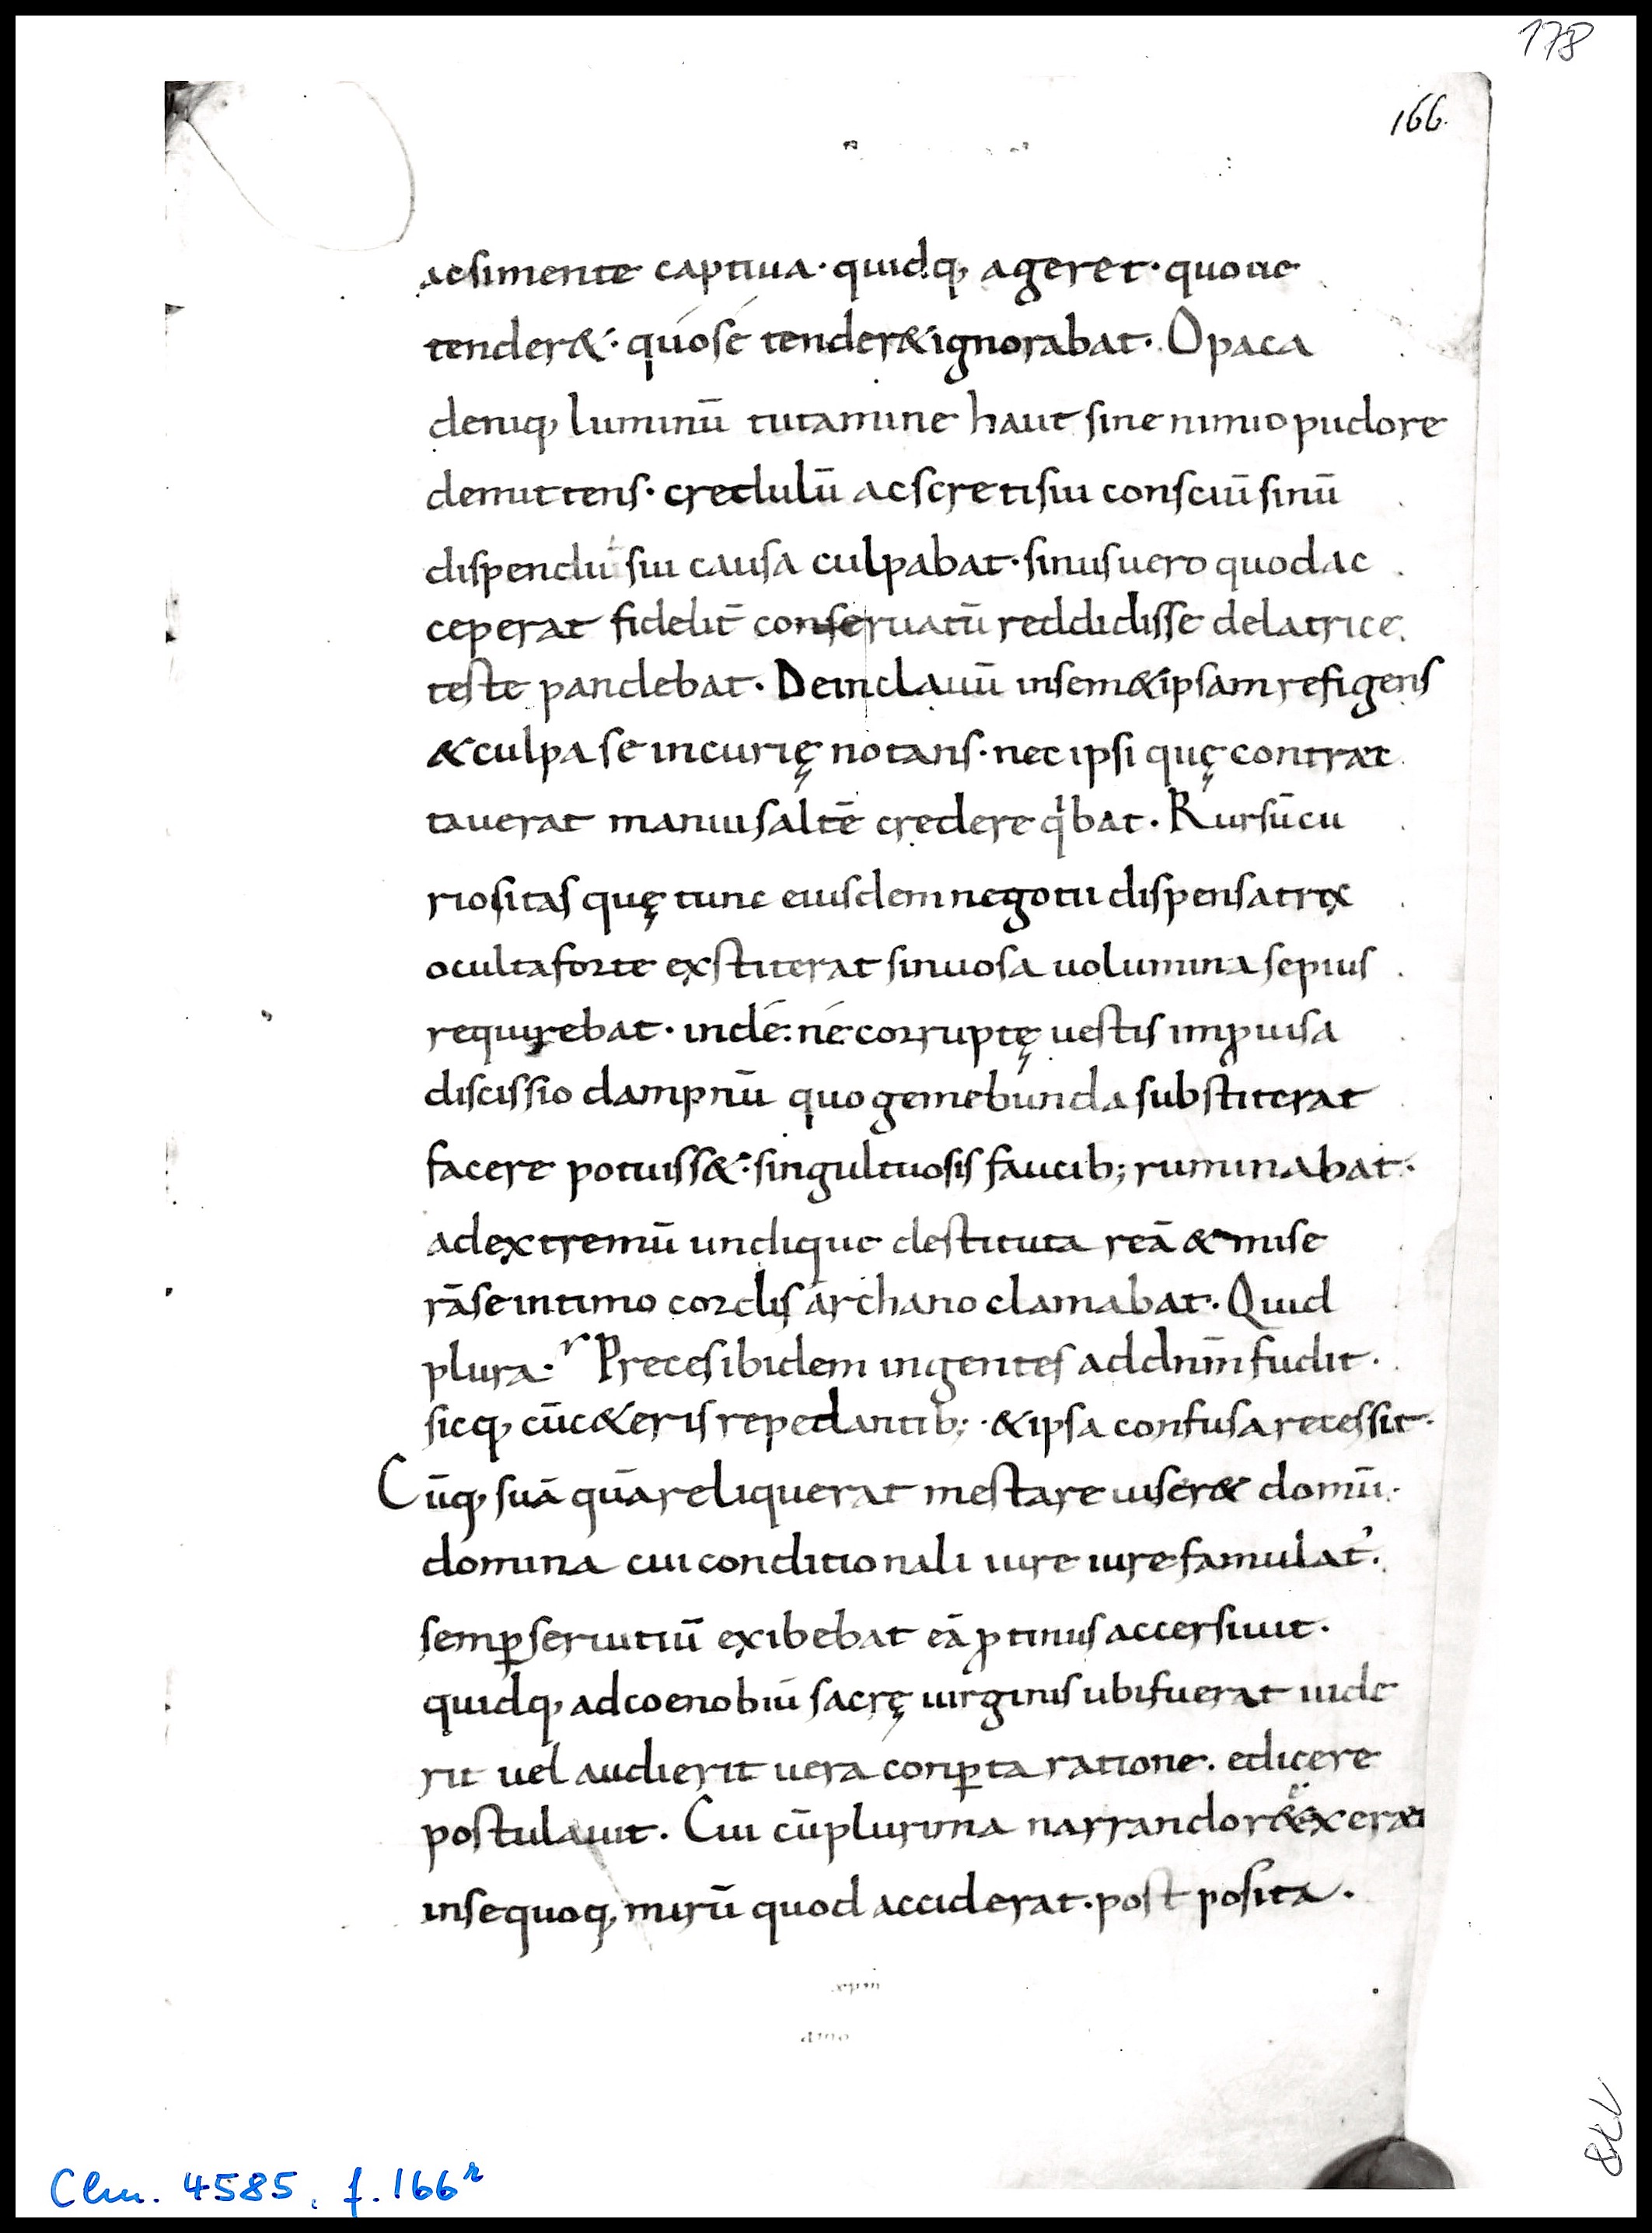 178
166
acsi mente captiua· quidq; ageret· quoue
tender&· quó sé tender& ignorabat· Opaca
deniq; luminū tutamine haut sine nimio pudore
demittens· credulū ac screti sui consciū sinū
dispendii sui causa culpabat· sinus uero quod ac
ceperat fidelit̄ conseruatū reddidisse delatrice
teste pandebat· Dein clauū insem& ipsam refigens
& culpa se incurię notans· nec ipsi quę contrac
tauerat manui saltē credere qͥbat· Rursū cu
riositas quę tunc eiusdem negotii dispensatrix
oculta forte exstiterat sinuosa uolumina sepius
requirebat· indé· né corruptę uestis imꝓuisa
discissio dampnū quo gemebunda substiterat
facere potuiss&· singultuosis faucib; ruminabat·
ad extremū undique destituta reā & mise
rā se intimo cordis archano clamabat· Quid
plura· Preces ibidem ingentes ad dn̄m fudit·
sicq; cū c&eris repedantib; · & ipsa confusa recessit·
Cūq; suā quā reliquerat mesta reuiser& domū·
domina cui conditionali iure iure famulat᾿·
semꝑ seruitiū exibebat eā ꝓtinus accersiuit·
quidq; ad coenobiū sacrę uirginis ubi fuerat uide
rit uel audierit uera conꝑta ratione· edicere
postulauit· Cui cū plurima narrando r&exerat
in se quoq; mirū quod acciderat· post posita·
Clm. 4585, f. 166ʳ
178